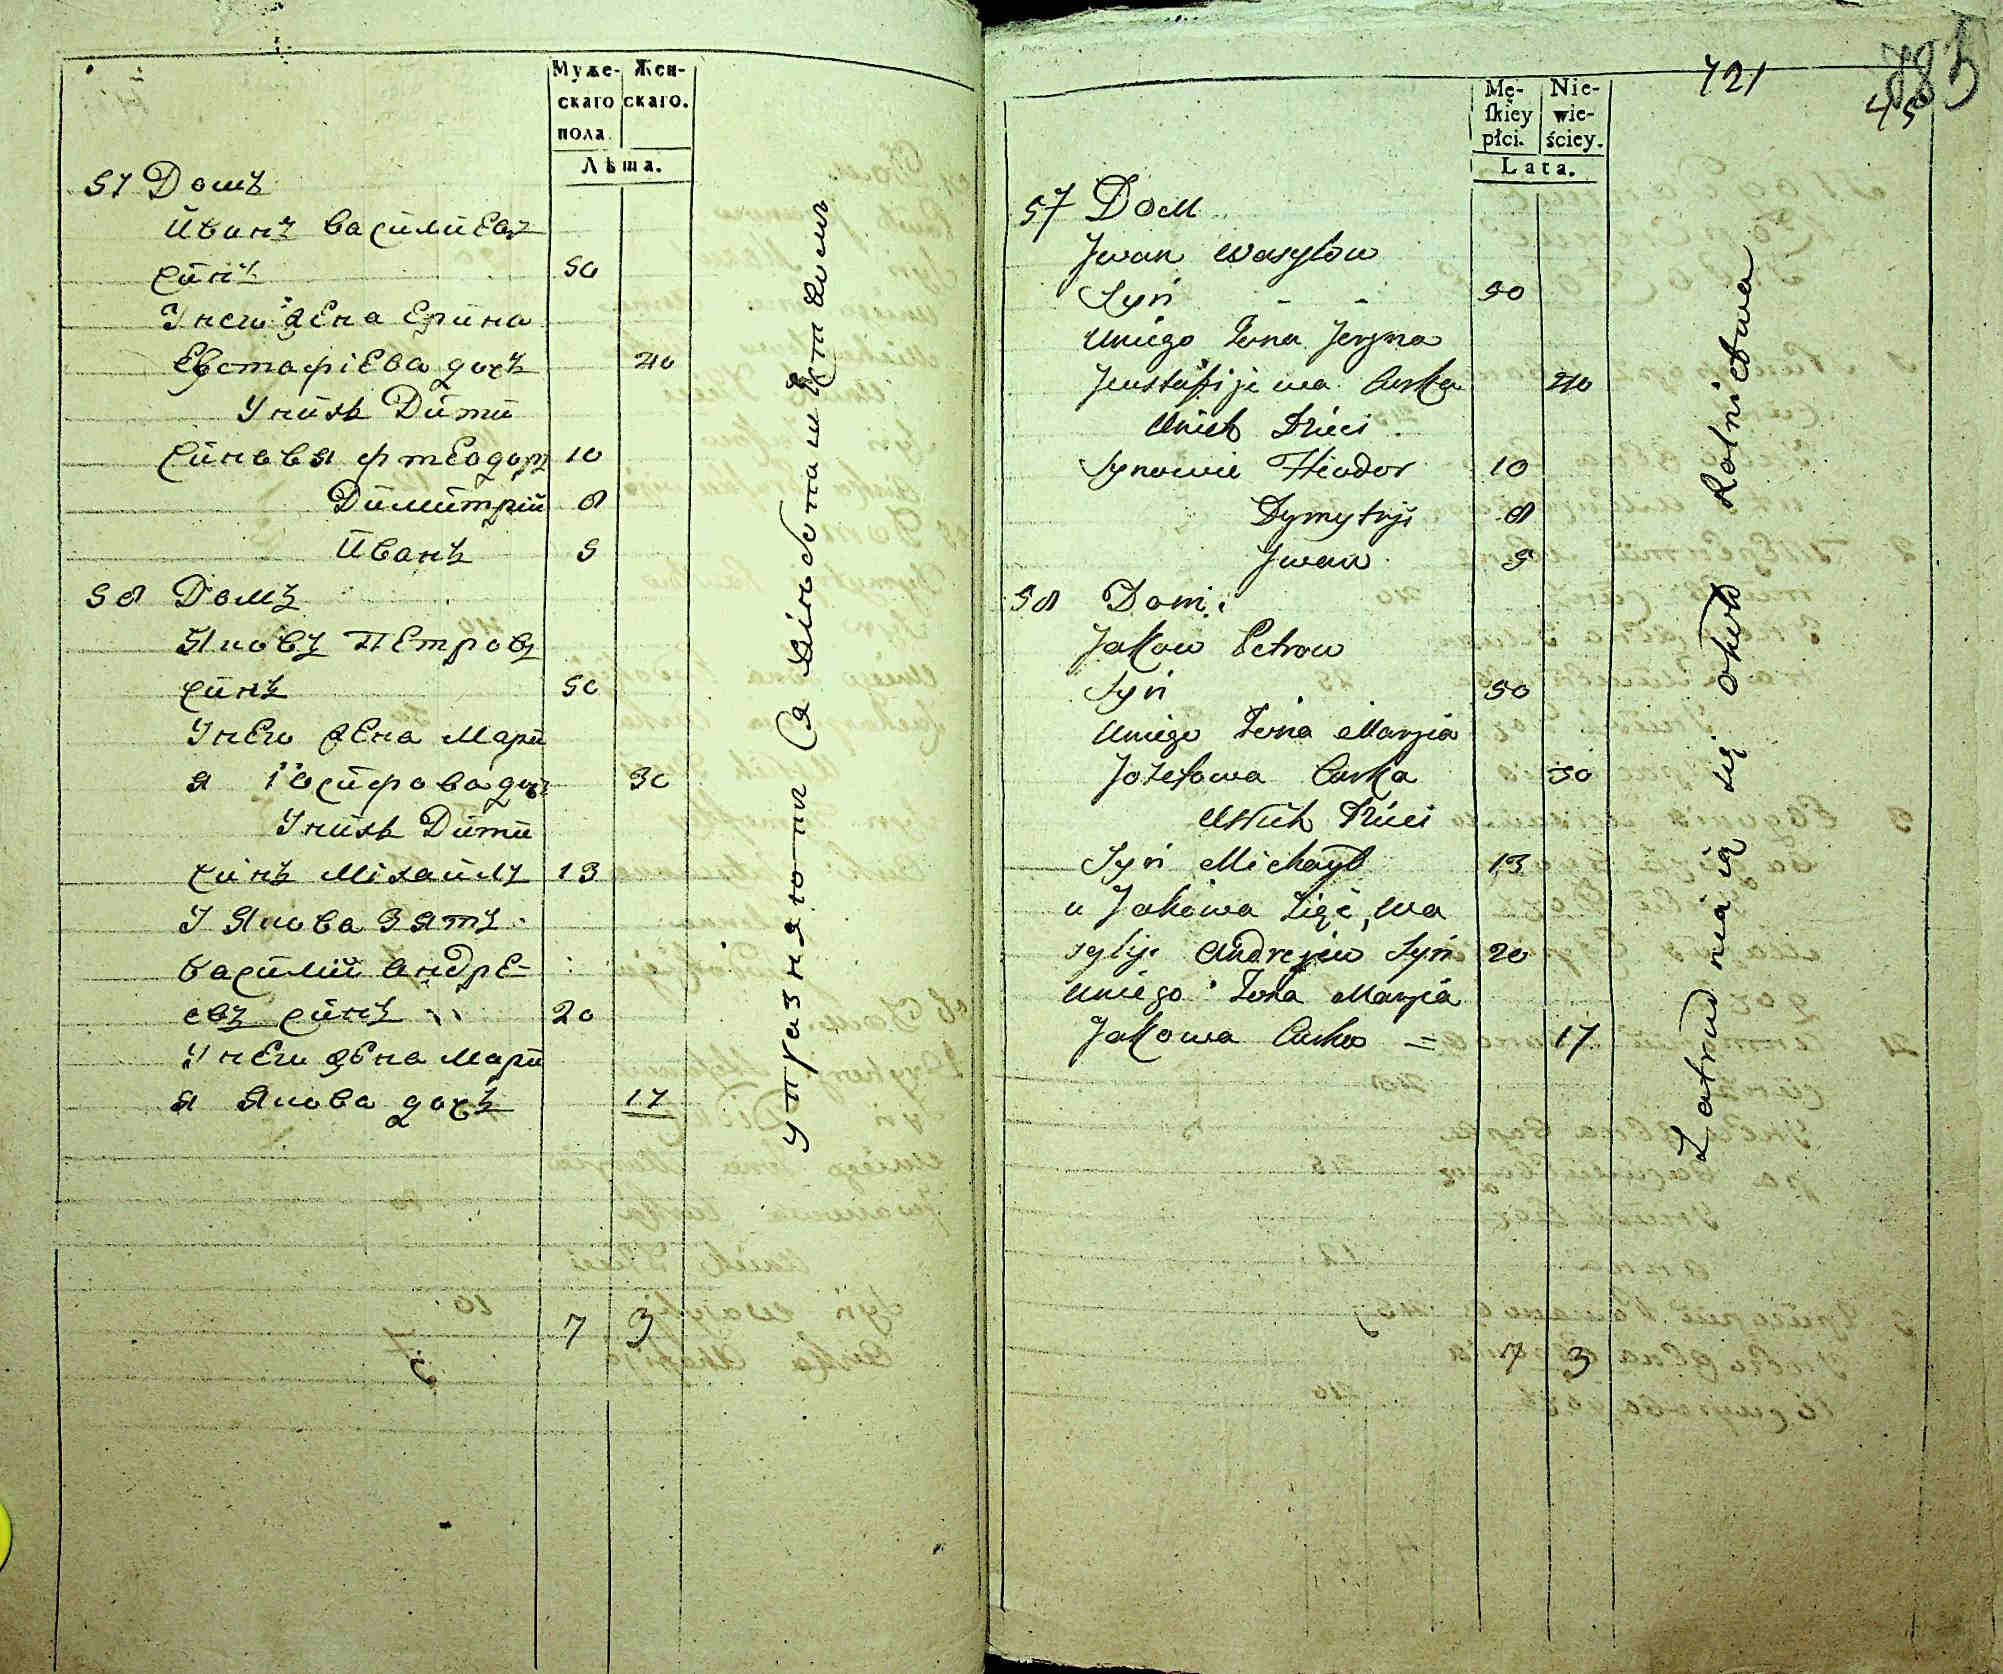 Муже- Жен-
скаго скаго.
пола.
Лѣта.
57 Домъ
Иванъ Василиевъ
синъ 50
У него жена Ерина
Евстафіева дочъ 40
У нихъ Дити
Синовья Фтеодоръ 10
Димитрий 8
Иванъ 5
58 Домъ
Яковъ Петровъ
синъ 50
У него жена Мари
я Іосифова дочъ 30
У нихъ Дити
синъ Міхаилъ 13
У Якова Зятъ
Василий Андре-
евъ синъ 20
У него жена Мари
я Якова дочъ 17
7 3
упразняются хлібопашеством
721
45
Mę- Nie-
ſkiey wie-
płci. ściey.
Lata.
57 Dom
Jwan Wasylow
Syn - - 50
Uniego Żona Jeryna
Jewstafijewa Curka 40
Unich Dzieci
Synowie Fteodor 10
Dymytryi 8
Jwan 5
58 Dom
Jakow Petrow
Syn 50
Uniego Żona Maryia
Jozefowa Curka 30
Unich Dzieci
Syn Michaył 13
u Jakowa Zięć, Wa
sylij Andrejew Syn 20
Uniego Żona Maryia
Jakowa Curka = 17
7 3
Zatrudniaią się około Rolnictwa